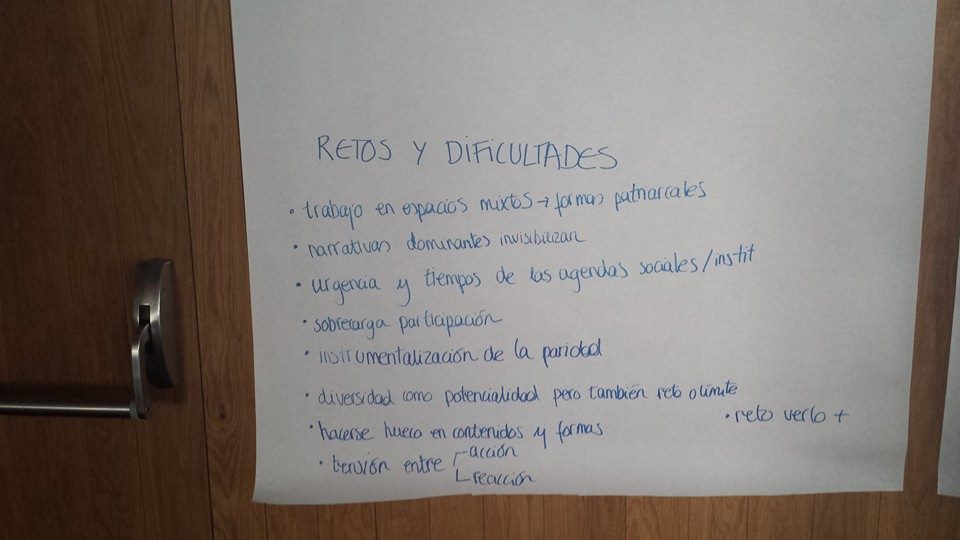 RETOS Y DIFICULTADES
• trabajo en espacios mixtos → formas patriarcales
• narrativas dominantes invisibilizan
• urgencia y tiempos de las agendas sociales/instit
• sobrecarga participación
• instrumentalización de la paridad
• diversidad como potencialidad pero también reto o límite
• reto verlo +
• hacerse hueco en contenidos y formas
• tensión entre acción
reacción